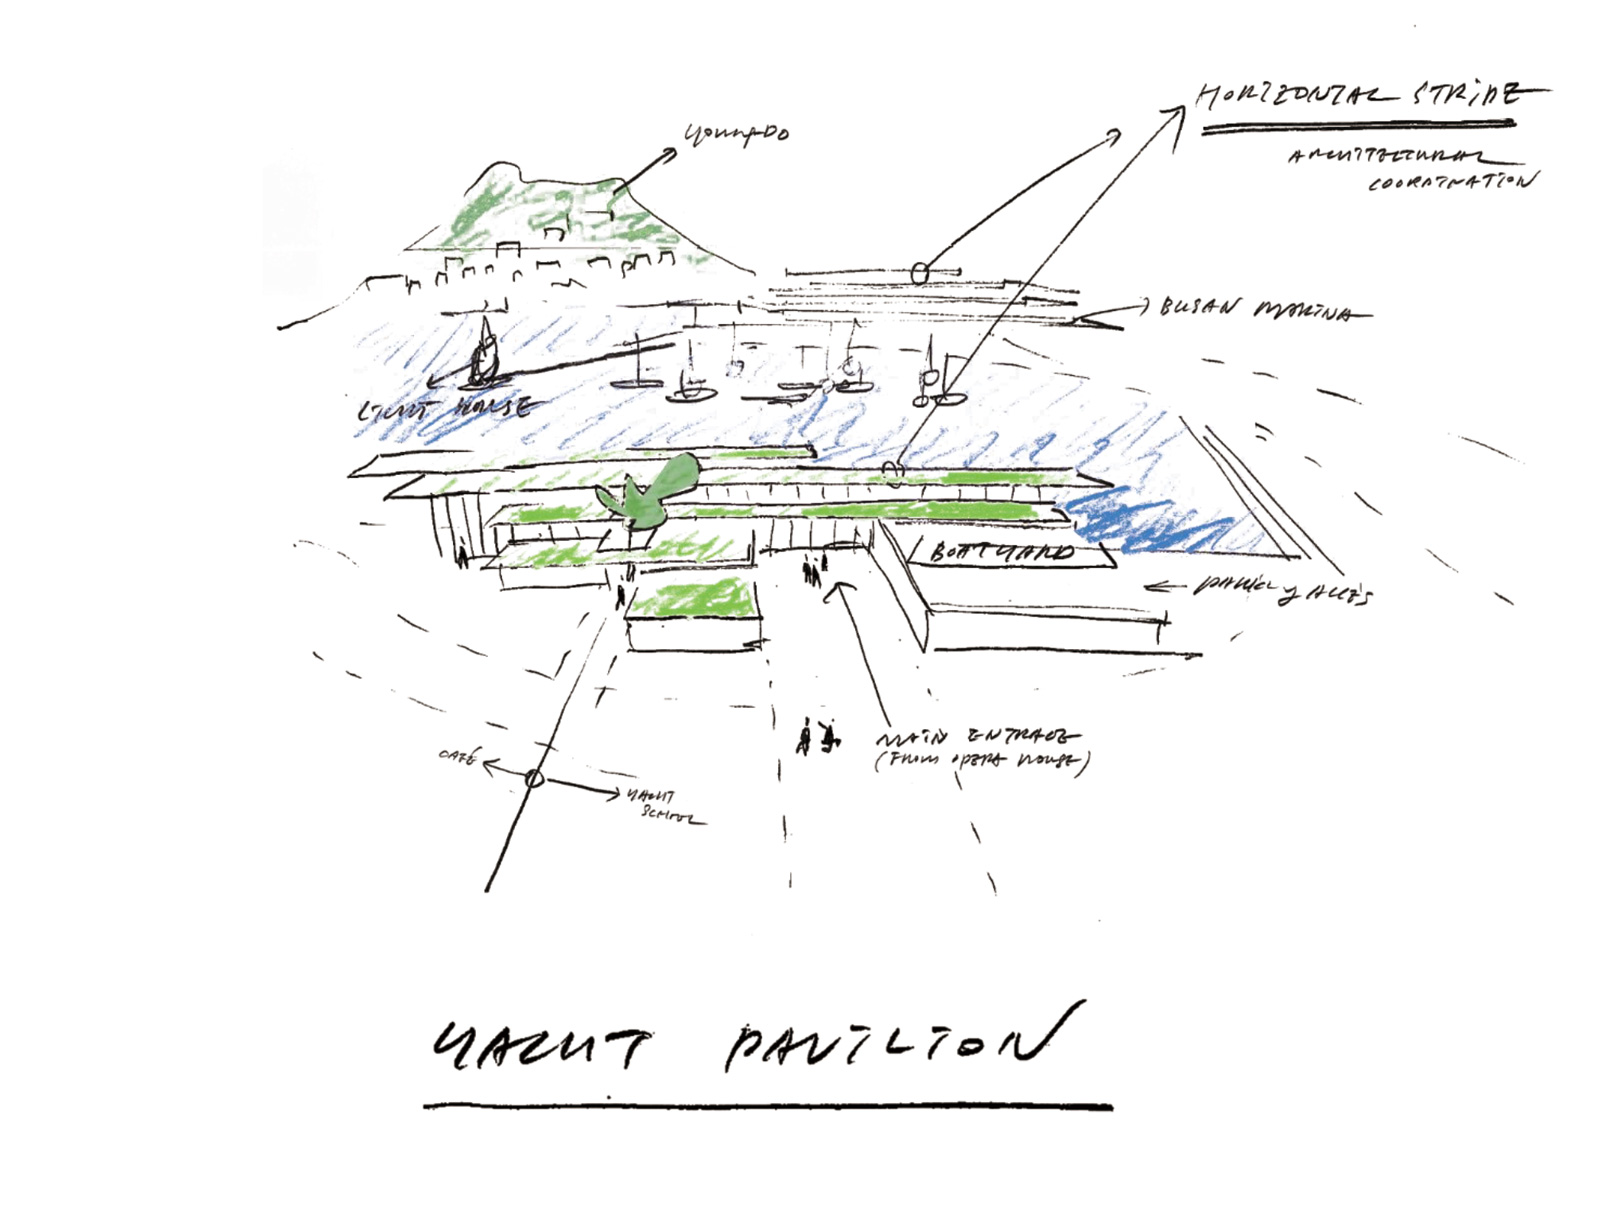 HORIZONTAL STRIPE
ARCHITECTURAL
COORDINATION
YOUNGDO
BUSAN MARINA
LIGHT HOUSE
BOATYARD
MAIN ENTRACE
(FROM OPERA HOUSE)
CAFÉ
YACHT
SCHOOL
YACHT PAVILION